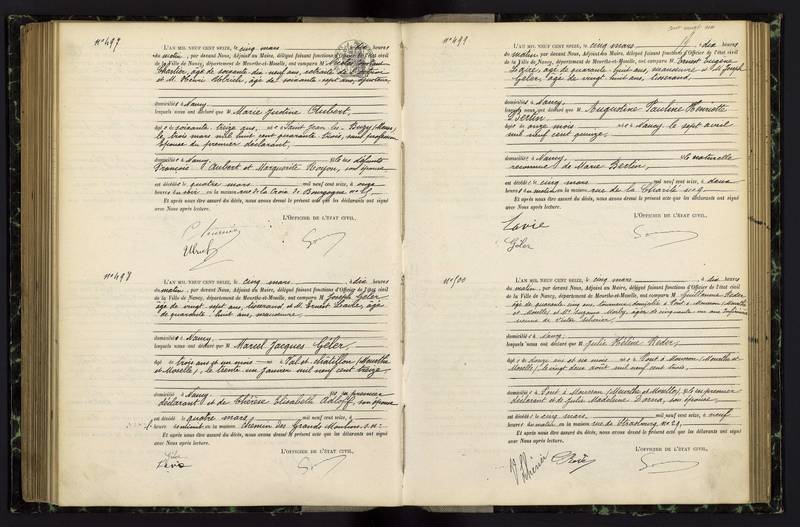 N° 497
L'AN MIL NEUF CENT SEIZE, le cinq mars à dix heures
du matin, par devant Nous, Adjoint au Maire, délégué faisant fonctions d'Officier de l'état civil
de la Ville de Nancy, département de Meurthe-et-Moselle, ont comparu M.
Charlier, âgé de soixante-dix-neuf ans, retraité de
et M. âgé de soixante-sept ans,
domiciliés à Nancy
lesquels nous ont déclaré que M. Marie Justine Aubert,
âgée de soixante-treize ans, née à Saint Jean les-Buzy (Meuse)
le trois mars mil huit cent quarante-trois, sans profession
Épouse du premier déclarant,
domiciliée à Nancy fille des défunts
François Aubert et Marguerite Noyon, son épouse
est décédée le quatre mars mil neuf cent seize, à onze
heures du soir en la maison rue de la Croix de Bourgogne n°
Et après nous être assuré du décès, nous avons dressé le présent acte que les déclarants ont signé
avec Nous après lecture.
L'OFFICIER DE L'ÉTAT CIVIL,
N° 498
L'AN MIL NEUF CENT SEIZE, le cinq mars à dix heures
du matin, par devant Nous, Adjoint au Maire, délégué faisant fonctions d'Officier de l'état civil
de la Ville de Nancy, département de Meurthe-et-Moselle, ont comparu M. Joseph Géler
âgé de vingt-sept ans, et M. Ernest âgé
de quarante-huit ans, manœuvre
domiciliés à Nancy
lesquels nous ont déclaré que M. Marcel Jacques Géler,
âgé de trois ans et un mois né à Val-et-Châtillon (Meurthe
et-Moselle), le trente un janvier mil neuf cent treize,
domicilié à Nancy fils du premier
déclarant et de Thérèse Elisabeth Adloff, son épouse
est décédé le quatre mars, mil neuf cent seize, à
heures en la maison chemin des Grands Moulins
Et après nous être assuré du décès, nous avons dressé le présent acte que les déclarants ont signé
avec Nous après lecture.
L'OFFICIER DE L'ÉTAT CIVIL,
Géler
N° 499
L'AN MIL NEUF CENT SEIZE, le cinq mars à dix heures
du matin, par devant Nous, Adjoint au Maire, délégué faisant fonctions d'Officier de l'état civil
de la Ville de Nancy, département de Meurthe-et-Moselle, ont comparu M. Ernest Eugène
âgé de quarante-huit ans, manœuvre et M. Joseph
Géler, âgé de vingt ans, tisserand,
domiciliés à Nancy,
lesquels nous ont déclaré que M. Augustine Pauline Henriette
Bertin,
âgée de onze mois née à Nancy le sept avril
mil neuf cent quinze,
domiciliée à Nancy, fille naturelle
reconnue de Marie Bertin,
est décédée le cinq mars mil neuf cent seize, à deux
heures du matin en la maison rue de la Charité
Et après nous être assuré du décès, nous avons dressé le présent acte que les déclarants ont signé
avec Nous après lecture.
L'OFFICIER DE L'ÉTAT CIVIL,
Géler
N° 500
L'AN MIL NEUF CENT SEIZE, le cinq mars à dix heures
du matin, par devant Nous, Adjoint au Maire, délégué faisant fonctions d'Officier de l'état civil
de la Ville de Nancy, département de Meurthe-et-Moselle, ont comparu M. Guillaume Reder,
âgé de quarante-cinq ans, domicilié à Pont à Mousson (Meurthe
et Moselle) et Mme Suzanne âgée de cinquante un ans
domiciliée à Nancy
lesquels nous ont déclaré que M. Julie Hélène Reder,
âgée de douze ans et six mois née à Pont à Mousson (Meurthe-et-
Moselle), le vingt deux août mil neuf cent trois,
domiciliée à Pont à Mousson (Meurthe et Moselle), fille du premier
déclarant et de Julie Madeleine son épouse,
est décédée le cinq mars, mil neuf cent seize, à neuf
heures du matin en la maison rue de Strasbourg, n°
Et après nous être assuré du décès, nous avons dressé le présent acte que les déclarants ont signé
avec Nous après lecture.
L'OFFICIER DE L'ÉTAT CIVIL,